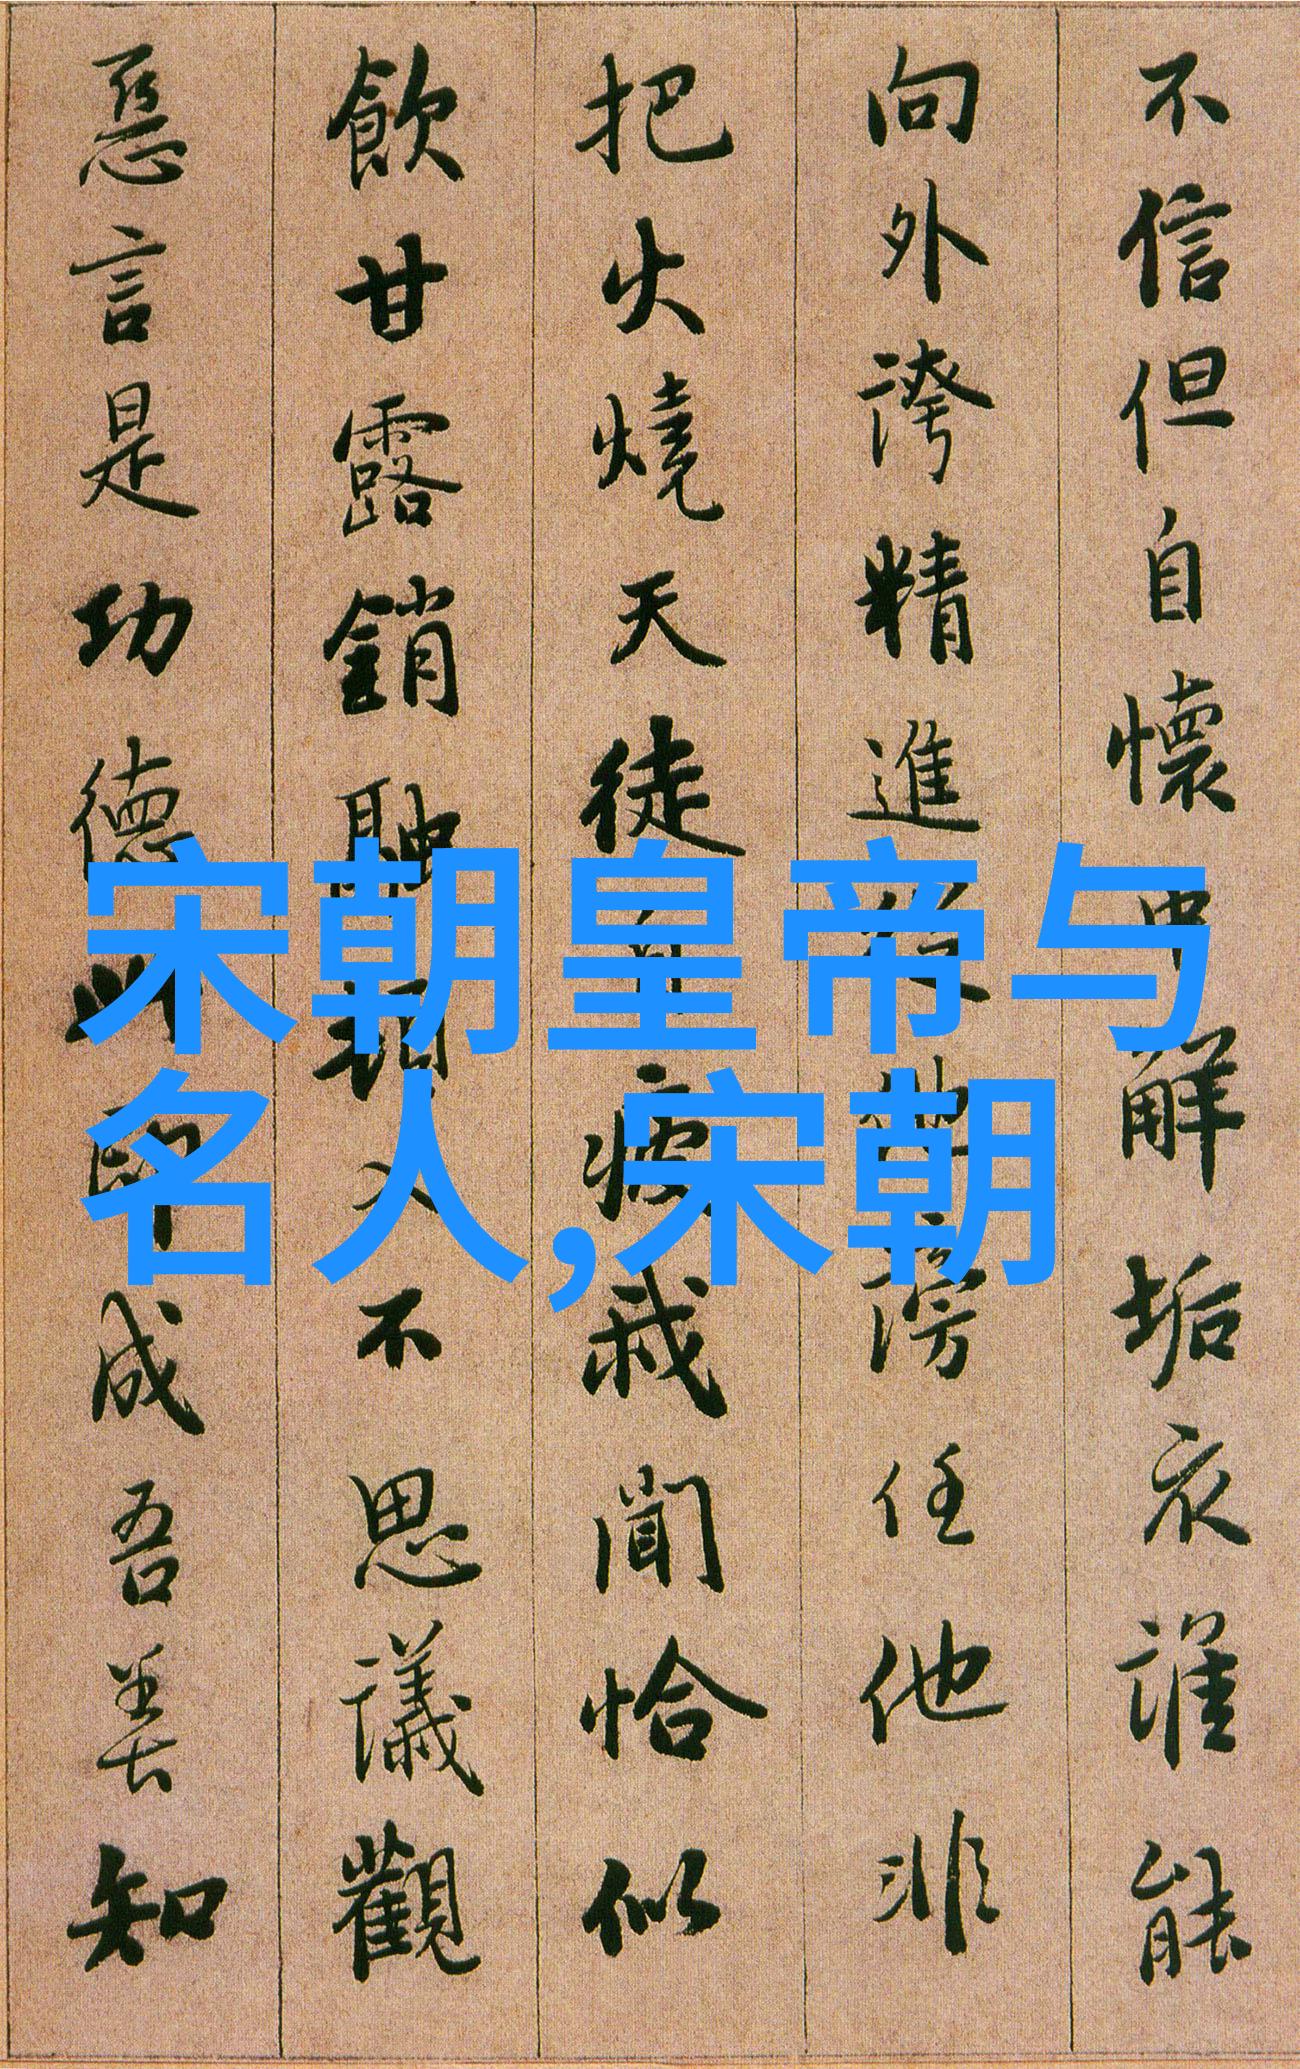 不信但自懷中解垢衣誰能
向外誇精進從他謗任他非
把火燒天徒自疲我聞恰似
飲甘露銷融頓入不思議觀
惡言是功德此即成吾善知
宋朝皇帝与
名人,宋朝